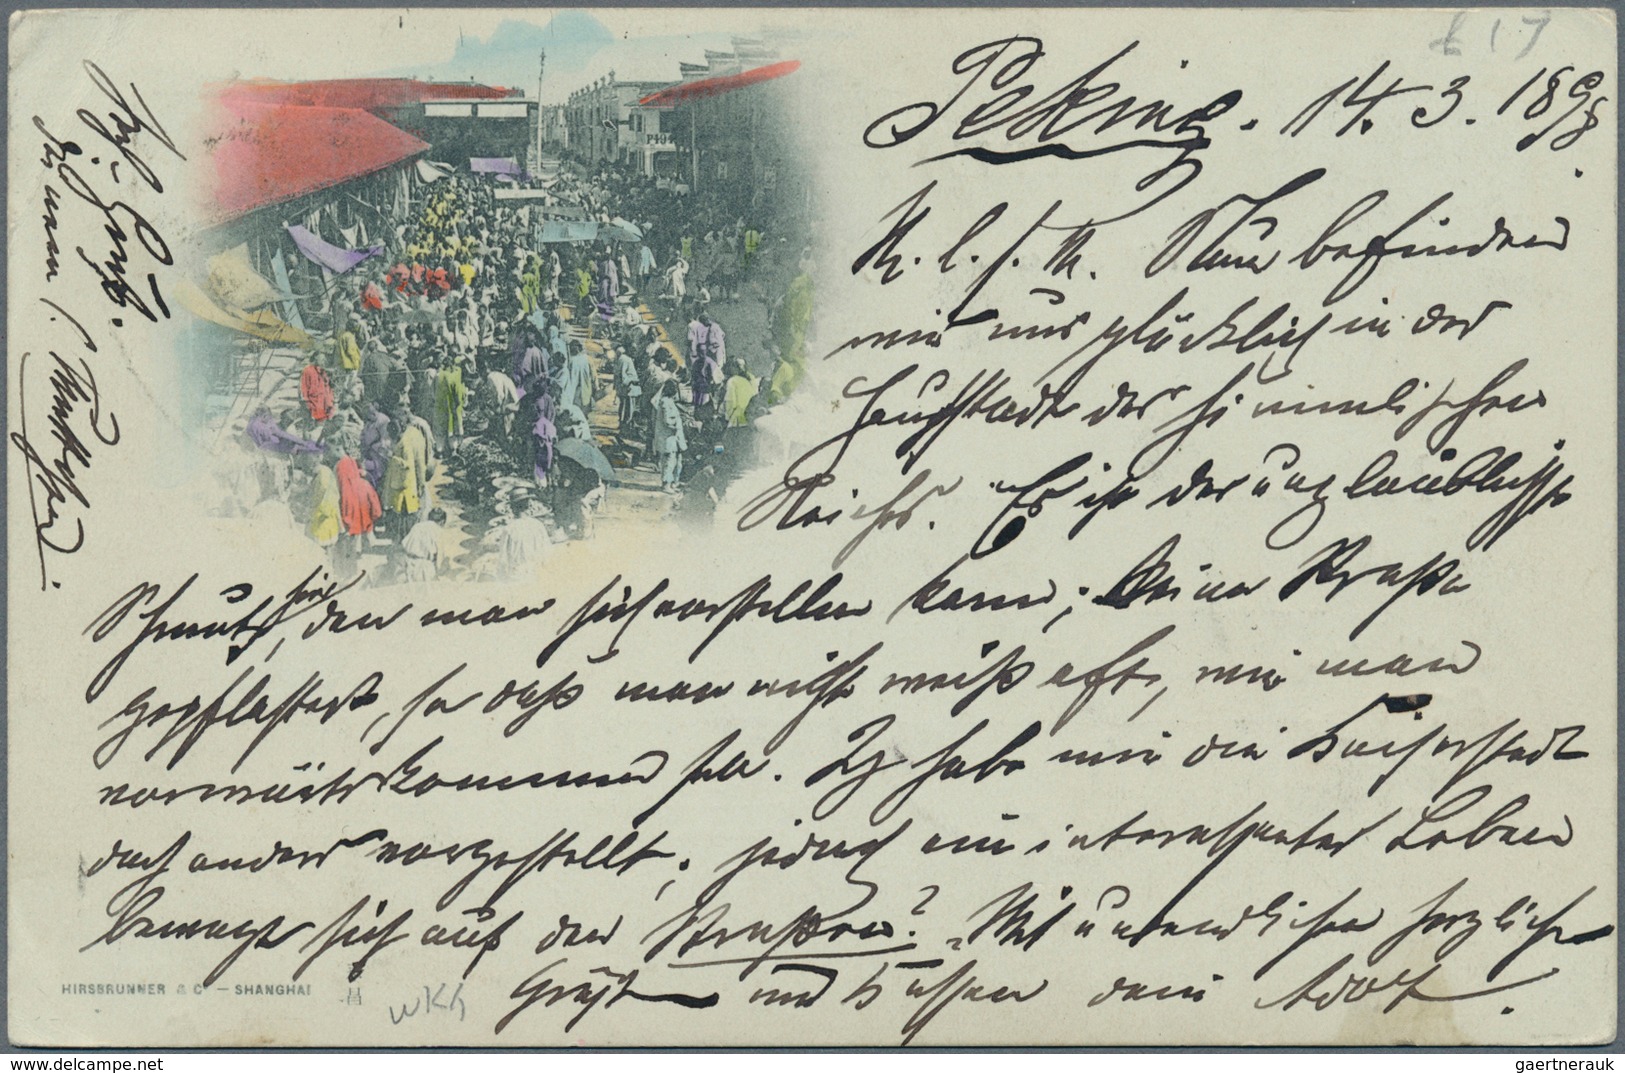 Peking. 14. 3. 1898.
M. l. f. M. Nun befinden
wir uns glücklich in der
Hauptstadt des himmlischen
Reichs. Es ist der unglaublichste
Schmutz hier, den man sich vorstellen kann; keine Straße
gepflastert, so daß man nicht weiß oft, wie man
vorwärtskommen soll. Ich habe mir die Kaiserstadt
doch anders vorgestellt; jedoch ein interessantes Leben
bewegt sich auf den Straßen. Mit unendlichen herzlichen
Grüßen und Küssen dein Adolf.
Gruß.
HIRSBRUNNER & Co - SHANGHAI
delcampe.net
gaertnerauk